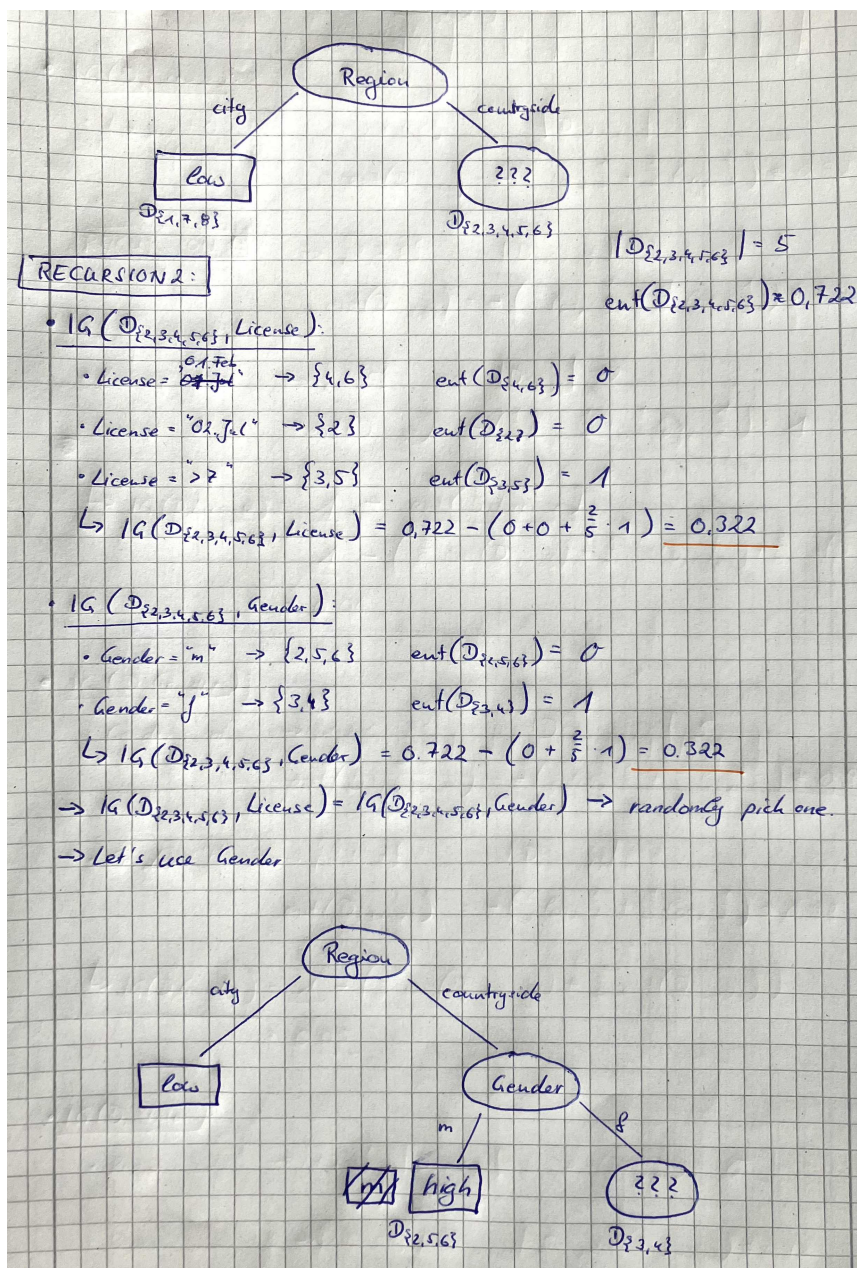 Region
city countryside
low ???
D{1,7,8} D{2,3,4,5,6}
|D{2,3,4,5,6}| = 5
RECURSION 2:
ent(D{2,3,4,5,6}) ≈ 0,722
• IG(D{2,3,4,5,6}, License):
• License = "01.Feb" → {4,6} ent(D{4,6}) = 0
• License = "02.Jul" → {2} ent(D{2}) = 0
• License = ">7" → {3,5} ent(D{3,5}) = 1
↳ IG(D{2,3,4,5,6}, License) = 0,722 - (0+0 + 2/5 · 1) = 0,322
• IG(D{2,3,4,5,6}, Gender):
• Gender = "m" → {2,5,6} ent(D{2,5,6}) = 0
• Gender = "f" → {3,4} ent(D{3,4}) = 1
↳ IG(D{2,3,4,5,6}, Gender) = 0.722 - (0 + 2/5 · 1) = 0.322
→ IG(D{2,3,4,5,6}, License) = IG(D{2,3,4,5,6}, Gender) → randomly pick one.
→ Let's use Gender
Region
city countryside
low Gender
m f
m high ???
D{2,5,6} D{3,4}